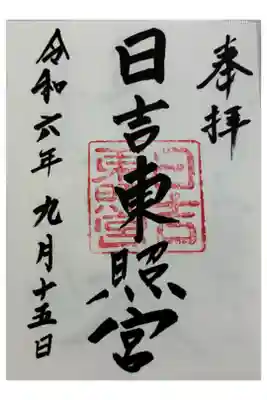 奉拝
日吉東照宮
日吉東照宮
令和六年九月十五日